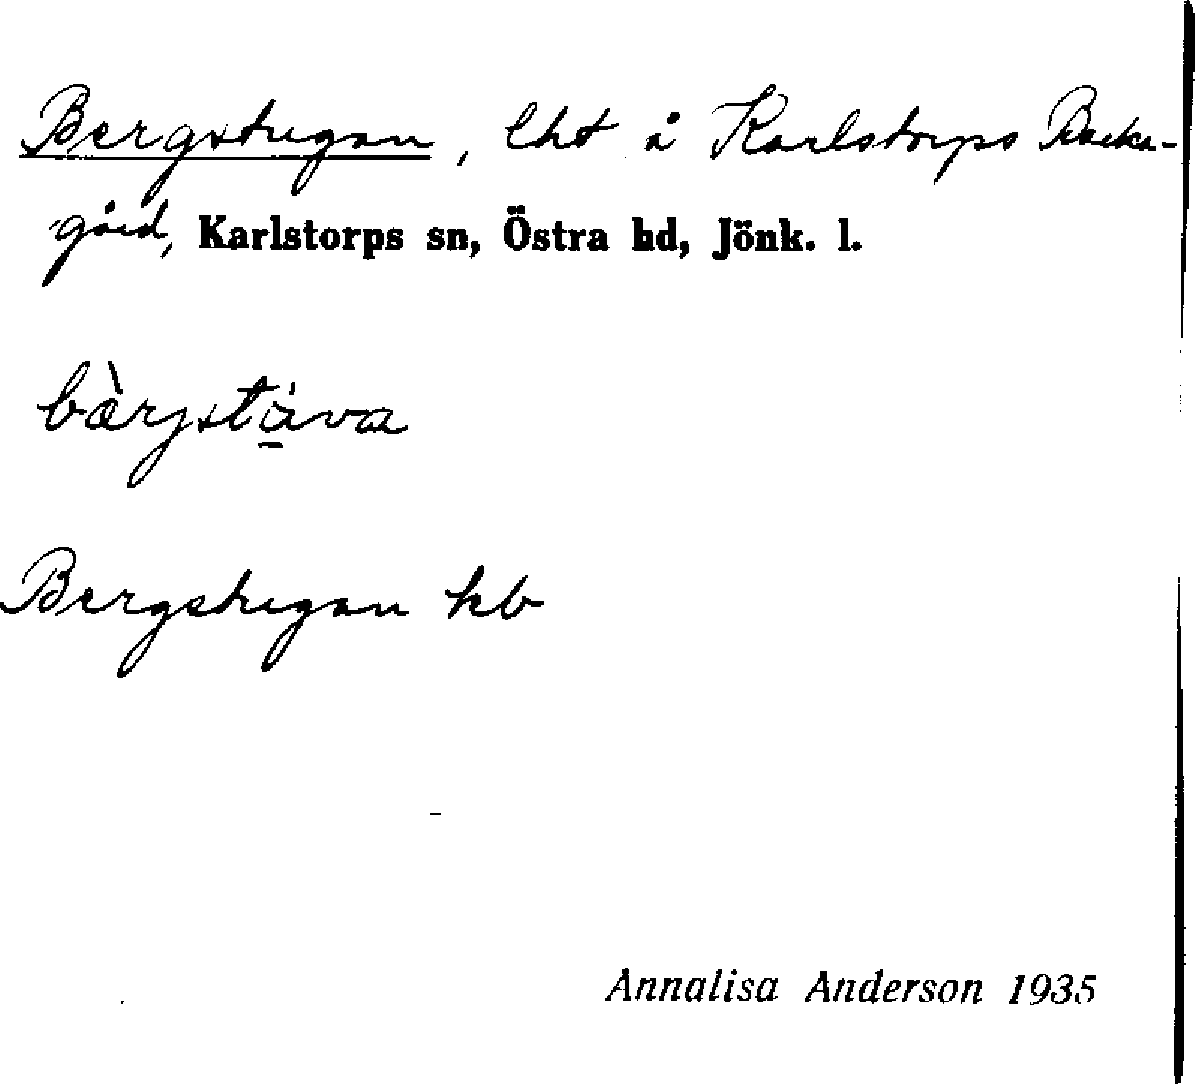 Bergstugan, lht å Karlstorps Backa-
gård, Karlstorps sn, Östra hd, Jönk. l.
Bergstugan kb
Annalisa Anderson 1935